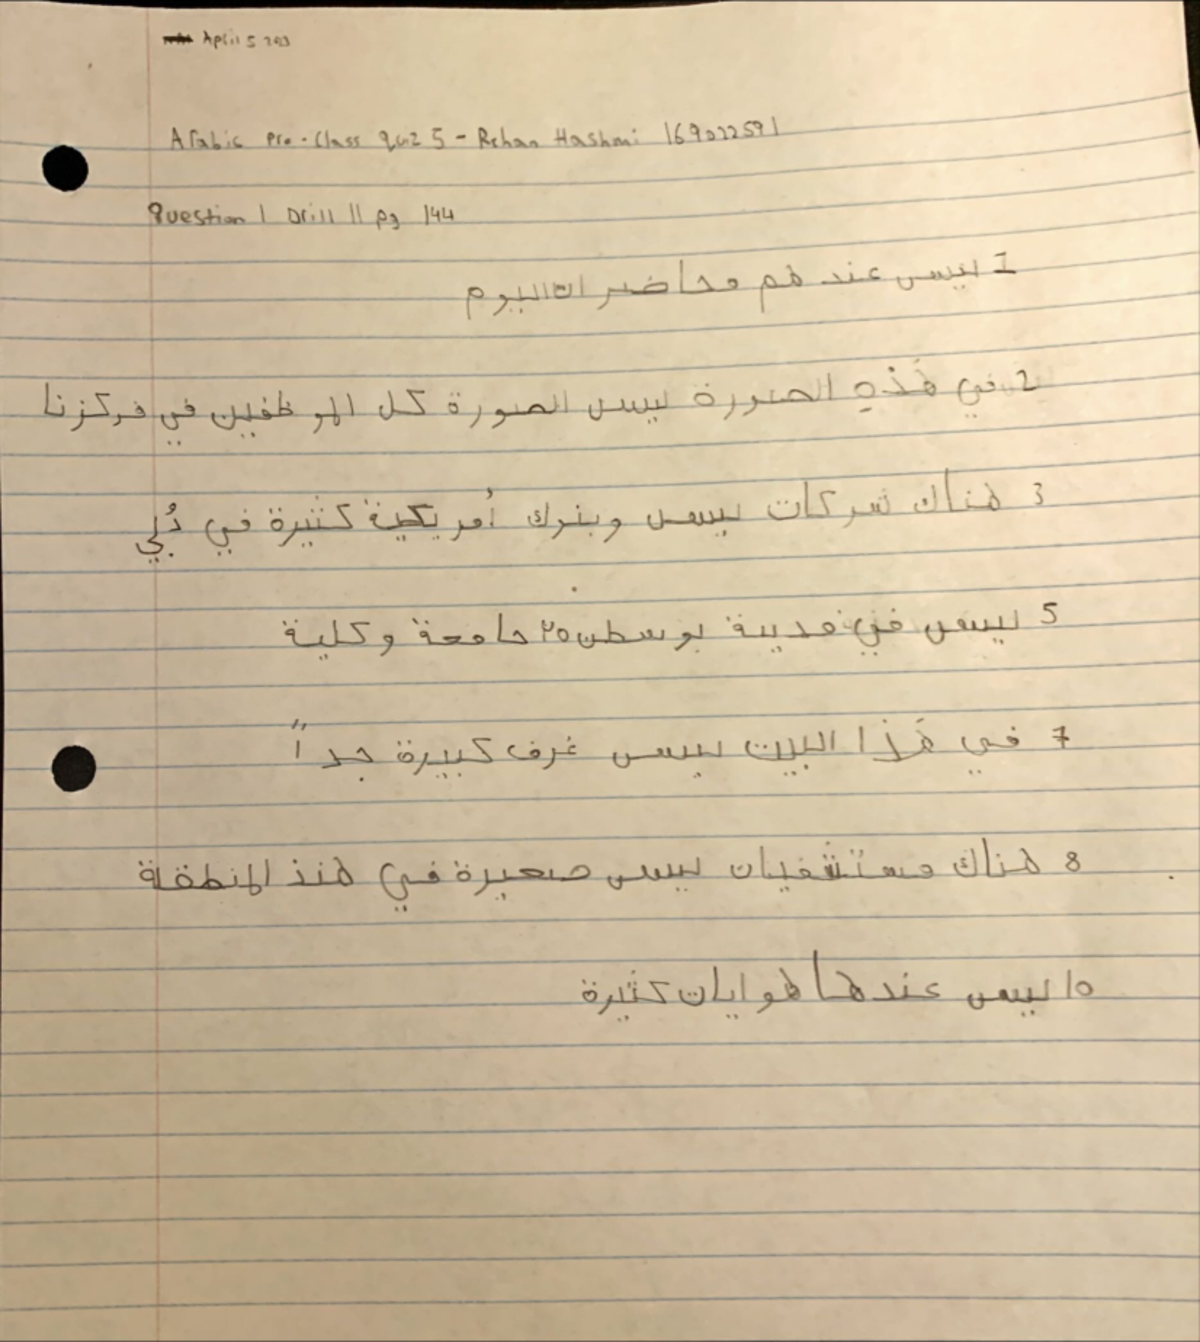 April 5 203
Arabic Pre-Class quiz 5 - Rehan Hashmi 169022591
Question 1 Drill 11 pg 144
1 ليس عند هم محاضرات اليوم
2 في هَذِهِ الصورة ليس الصورة كل الموظفين في مركزنا
3 هناك شركات ليس وبنوك أمريكية كثيرة في دُبي
5 ليس في مدينة بوسطن ٢٥ حامعة وكلية
7 في هَذا البيت ليس غرف كبيرة جداً
8 هناك مستشفيات ليس صعيرة في هنذ المنطقة
10 ليس عندها هوايات كثيرة